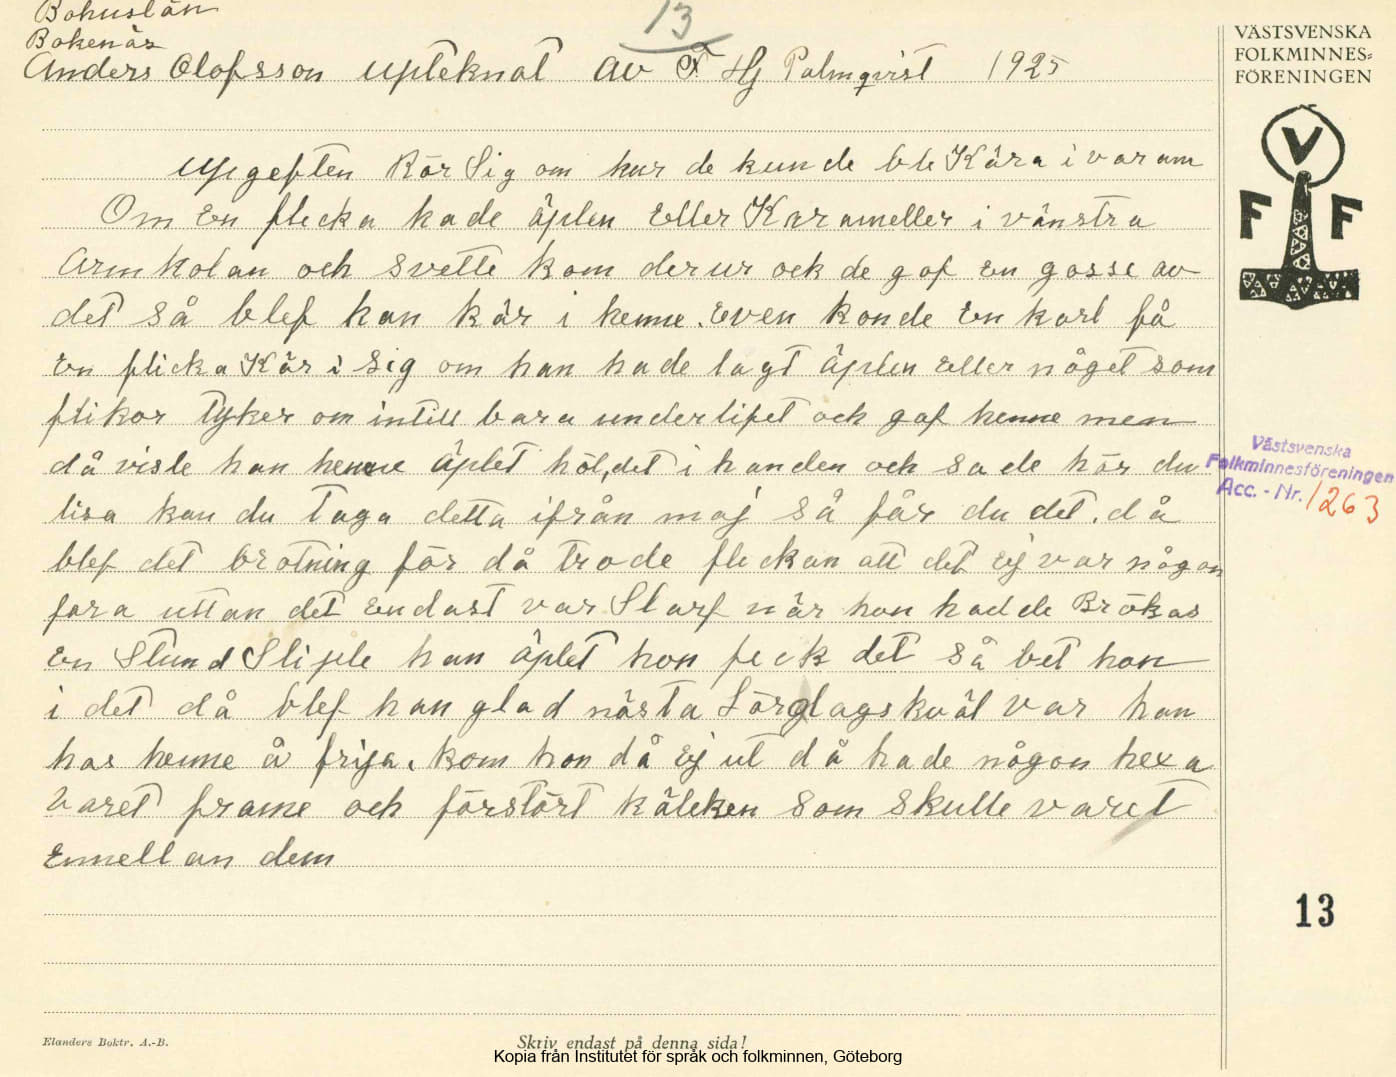 Bohuslän
Bokenäs
13
Anders Olofsson upteknat av F Hj Palmqvist 1925
VÄSTSVENSKA
FOLKMINNES-
FÖRENINGEN
V
F F
upgeften Rör Sig om hur de kunde ble Kära i varam
Om En flecka hade äplen Eller Karameller i vänstra
Armholan och svette kom derur ock de gof en gosse av
det så blef han kär i henne. Even konde En karl få
En flicka Kär i sig om han hade lagt äplen Eller något som
flikor tyker om intill bara underlifet och gaf henne men
då viste han henne äplet höl, det i handen och sade hör du
lisa kan du Taga detta ifrån maj så får du det. då
blef det brotning för då trode fleckan att det Ej var någon
fara uttan det Endast var Slarf när hon hadde Brökas
En Stund Sliple han äplet hon feck det så bet hon
i det då blef han glad nästa Lörglagskväl var han
hos henne å friga. kom hon då Ej ut då hade någon hexa
varet frame och förstört käleken som skulle varet
Emellan dem
Västsvenska
Folkminnesföreningen
Acc. - Nr. 1263
13
Elanders Boktr. A.-B.
Skriv endast på denna sida!
Kopia från Institutet för språk och folkminnen, Göteborg